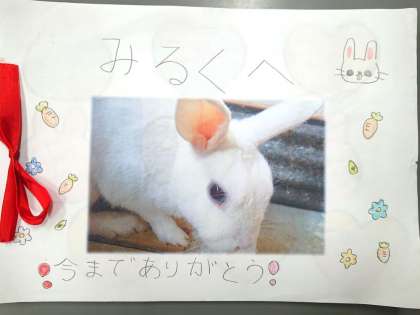 みるくへ
今までありがとう!